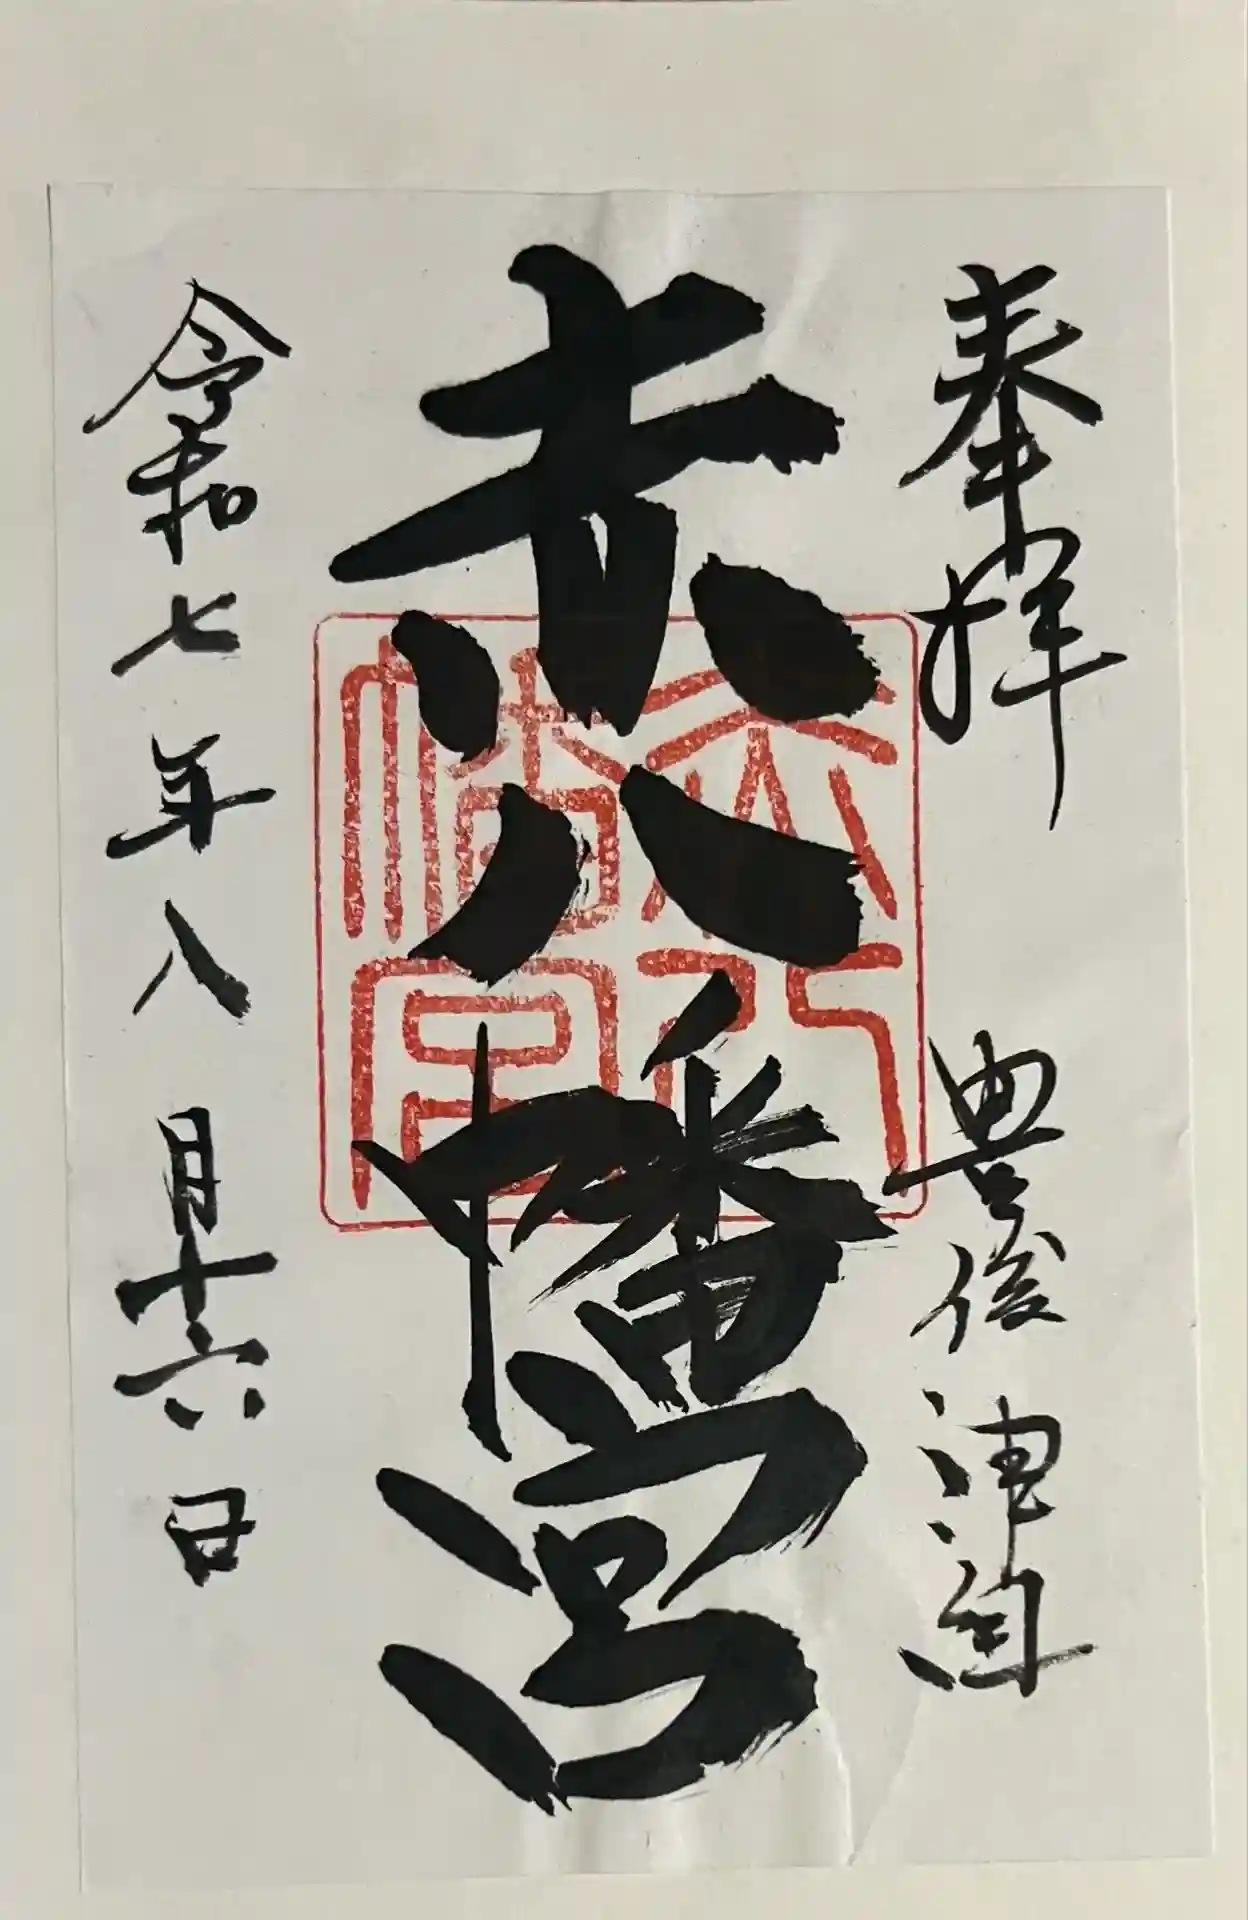 奉拝 豊後津組
赤八幡宮
赤八幡宮
令和七年八月十六日